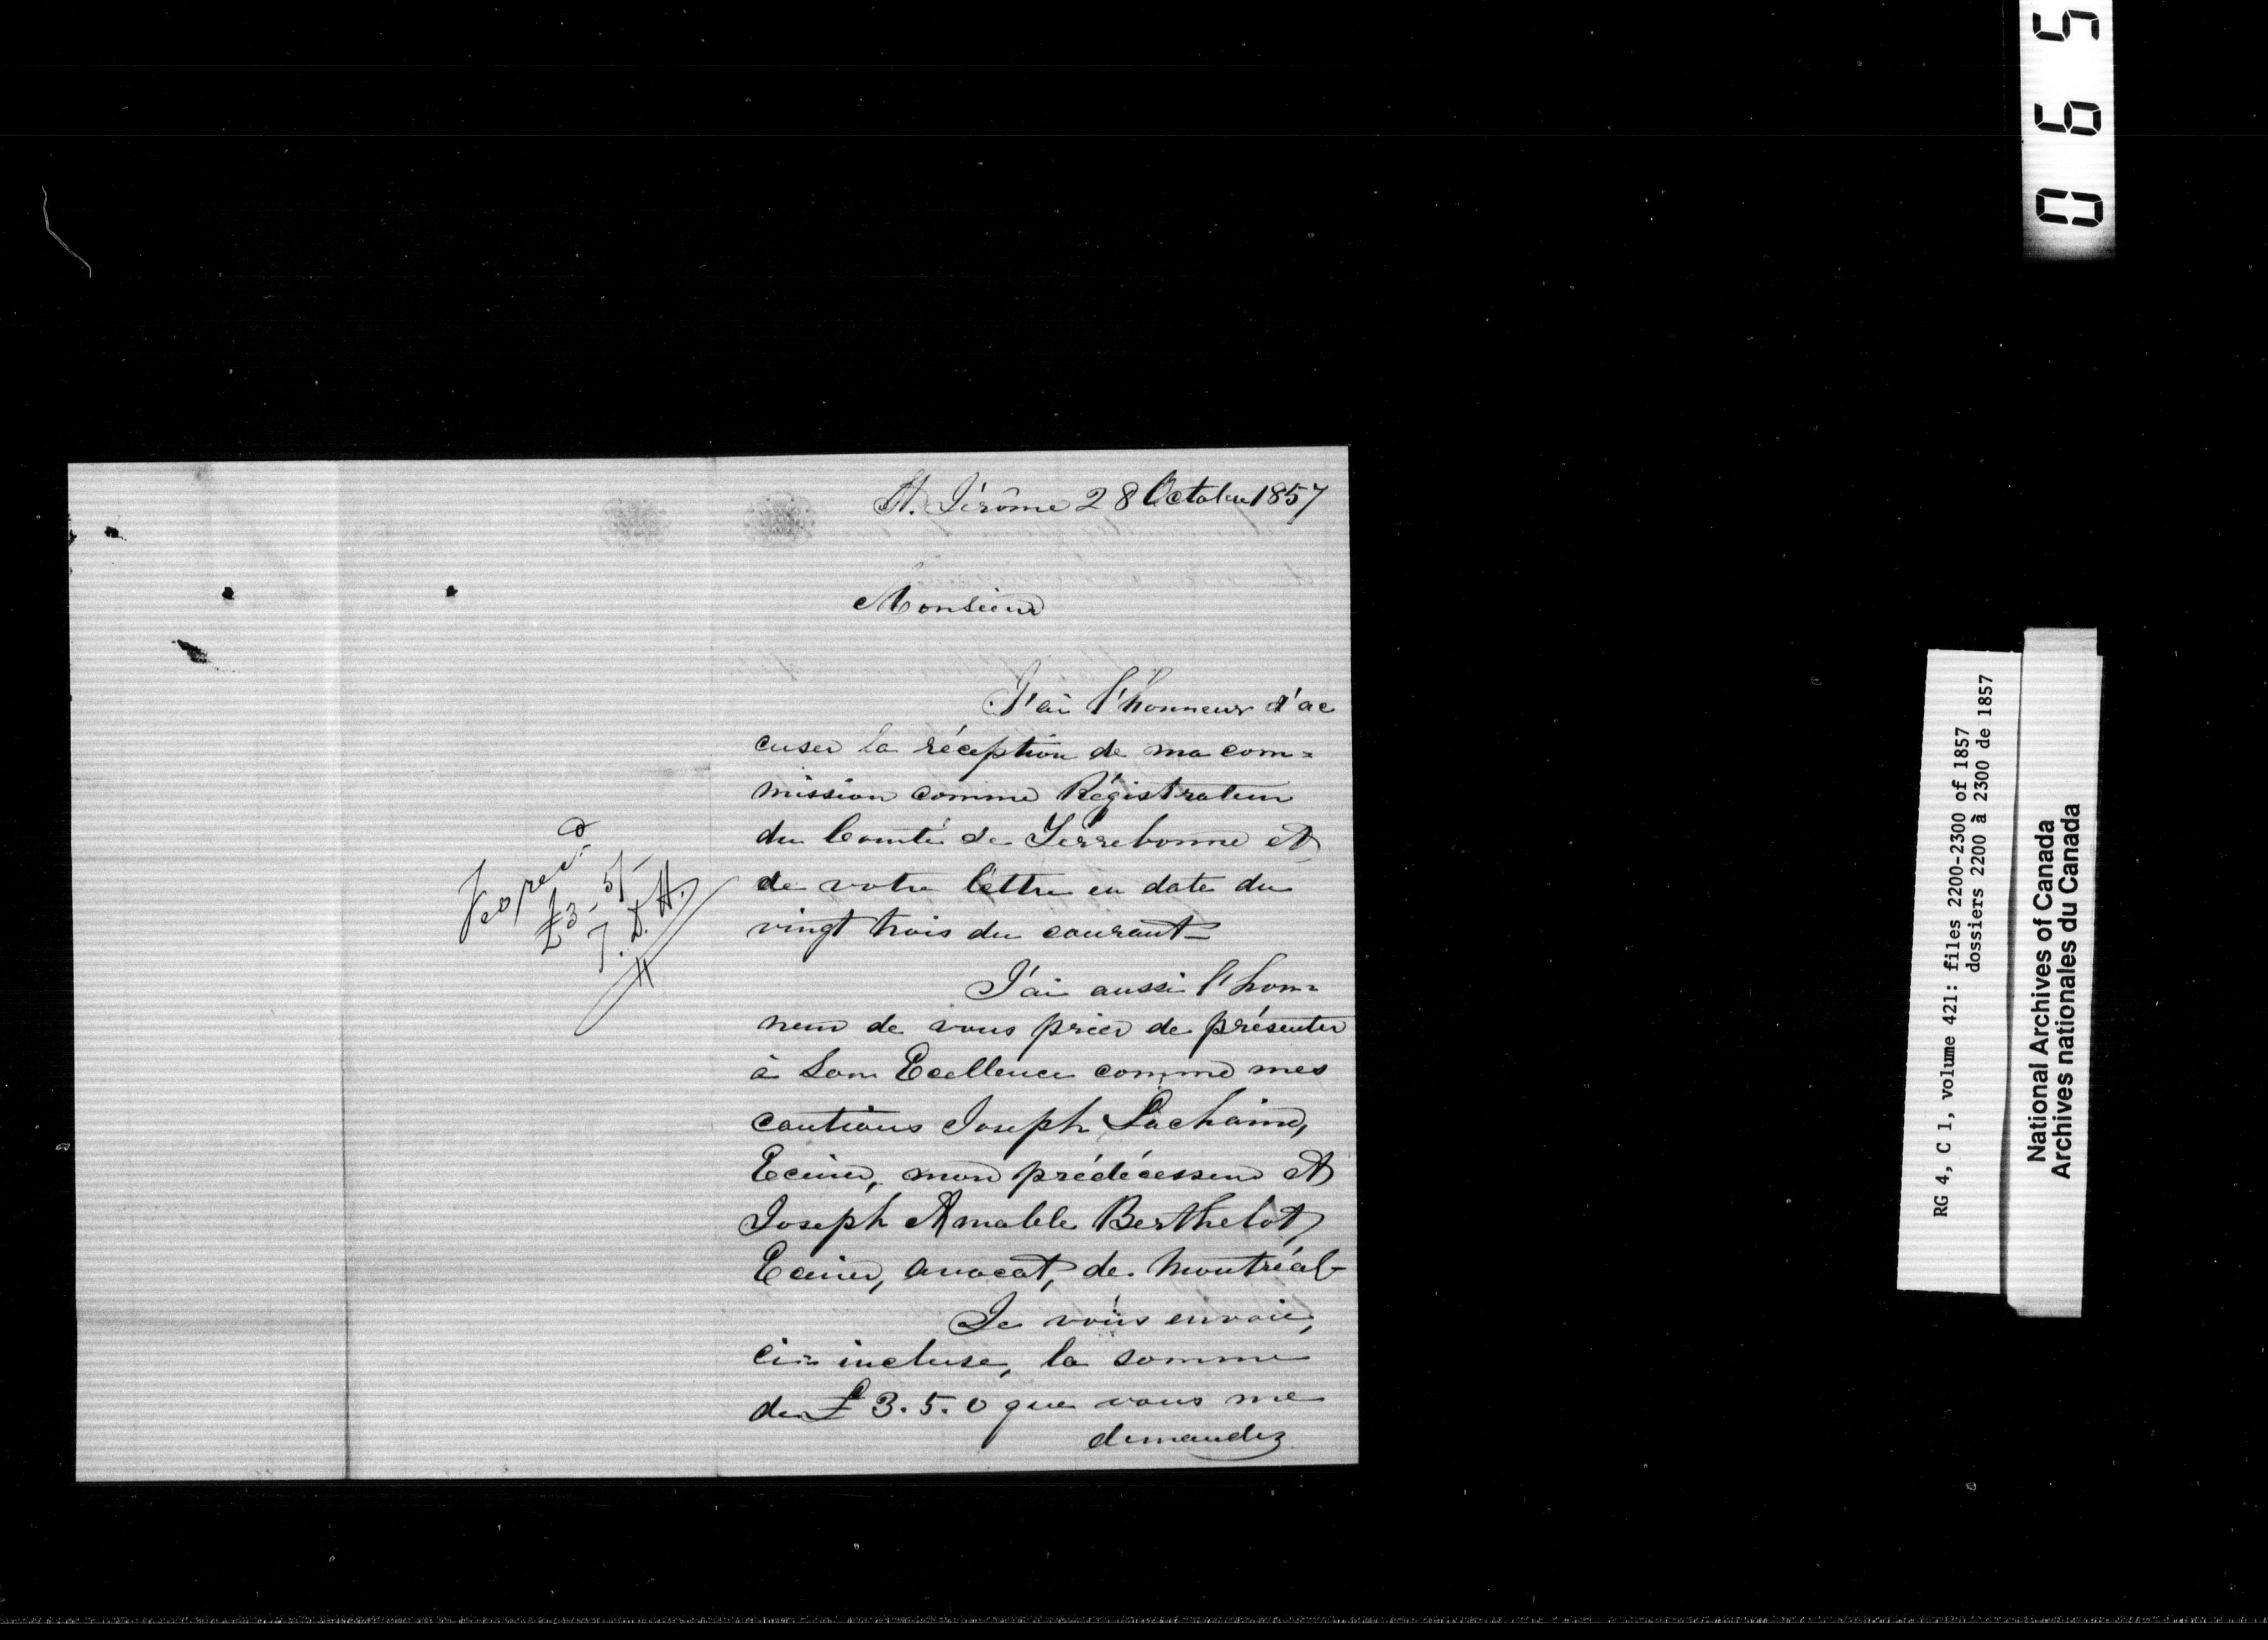 St. Jérôme 28 Octobre 1857
Monsieur
J'ai l'honneur d'ac
cuser la réception de ma com=
mission comme Régistrateur
du Comté de Terrebonne et
de votre lettre en date du
vingt trois du courant_
J'ai aussi l'hon=
neur de vous prier de présenter
à Son Excellence comme mes
cautions Joseph Lachaine,
Ecuier, mon prédécesseur et
Joseph Amable Berthelot,
Ecuier, avocat, de Montréal-
Je vous envoie,
ci=incluse, la somme
de £3.5.0 que vous me
demandez
£3-5/-
J.D.H.
065
RG 4, C 1, volume 421: files 2200-2300 of 1857
dossiers 2200 à 2300 de 1857
National Archives of Canada
Archives nationales du Canada